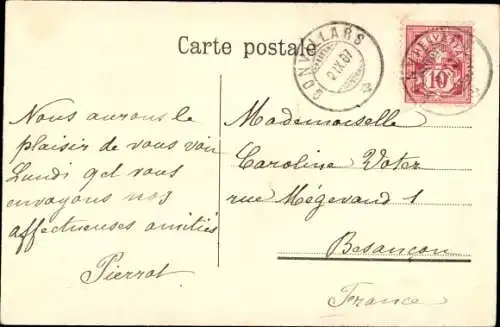 Carte postale
BONVILLARS
2 IX 07
HELVETIA
10
Nous aurons le
plaisir de vous voir
Lundi et vous
envoyons nos
affectueuses amitiés
Pierrot
Mademoiselle
Caroline Votez
rue Mégevand 1
Besançon
France